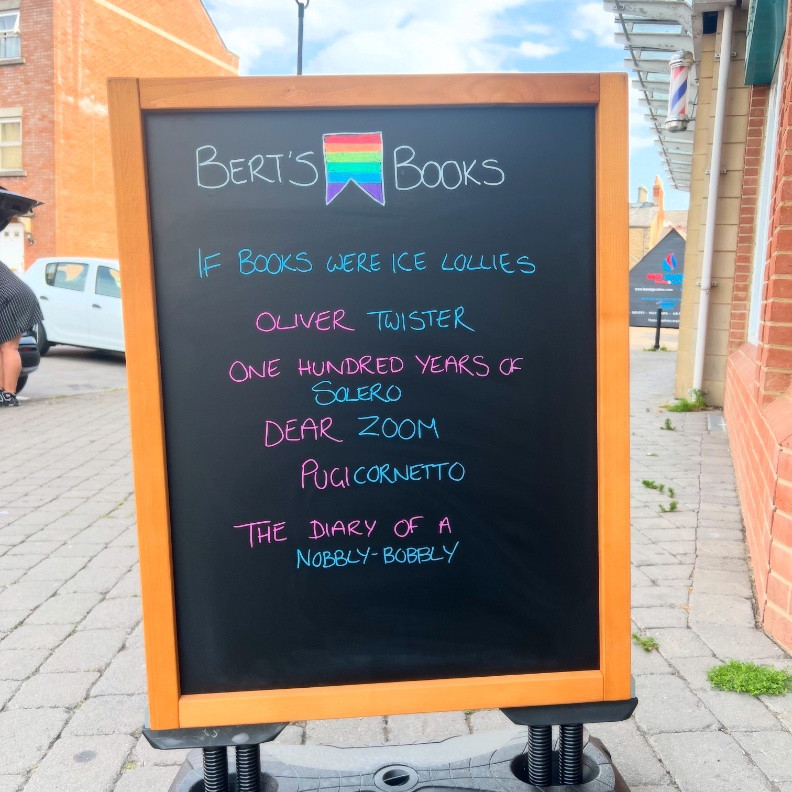 BERT'S BOOKS
IF BOOKS WERE ICE LOLLIES
OLIVER TWISTER
ONE HUNDRED YEARS OF
SOLERO
DEAR ZOOM
PUGICORNETTO
THE DIARY OF A
NOBBLY-BOBBLY